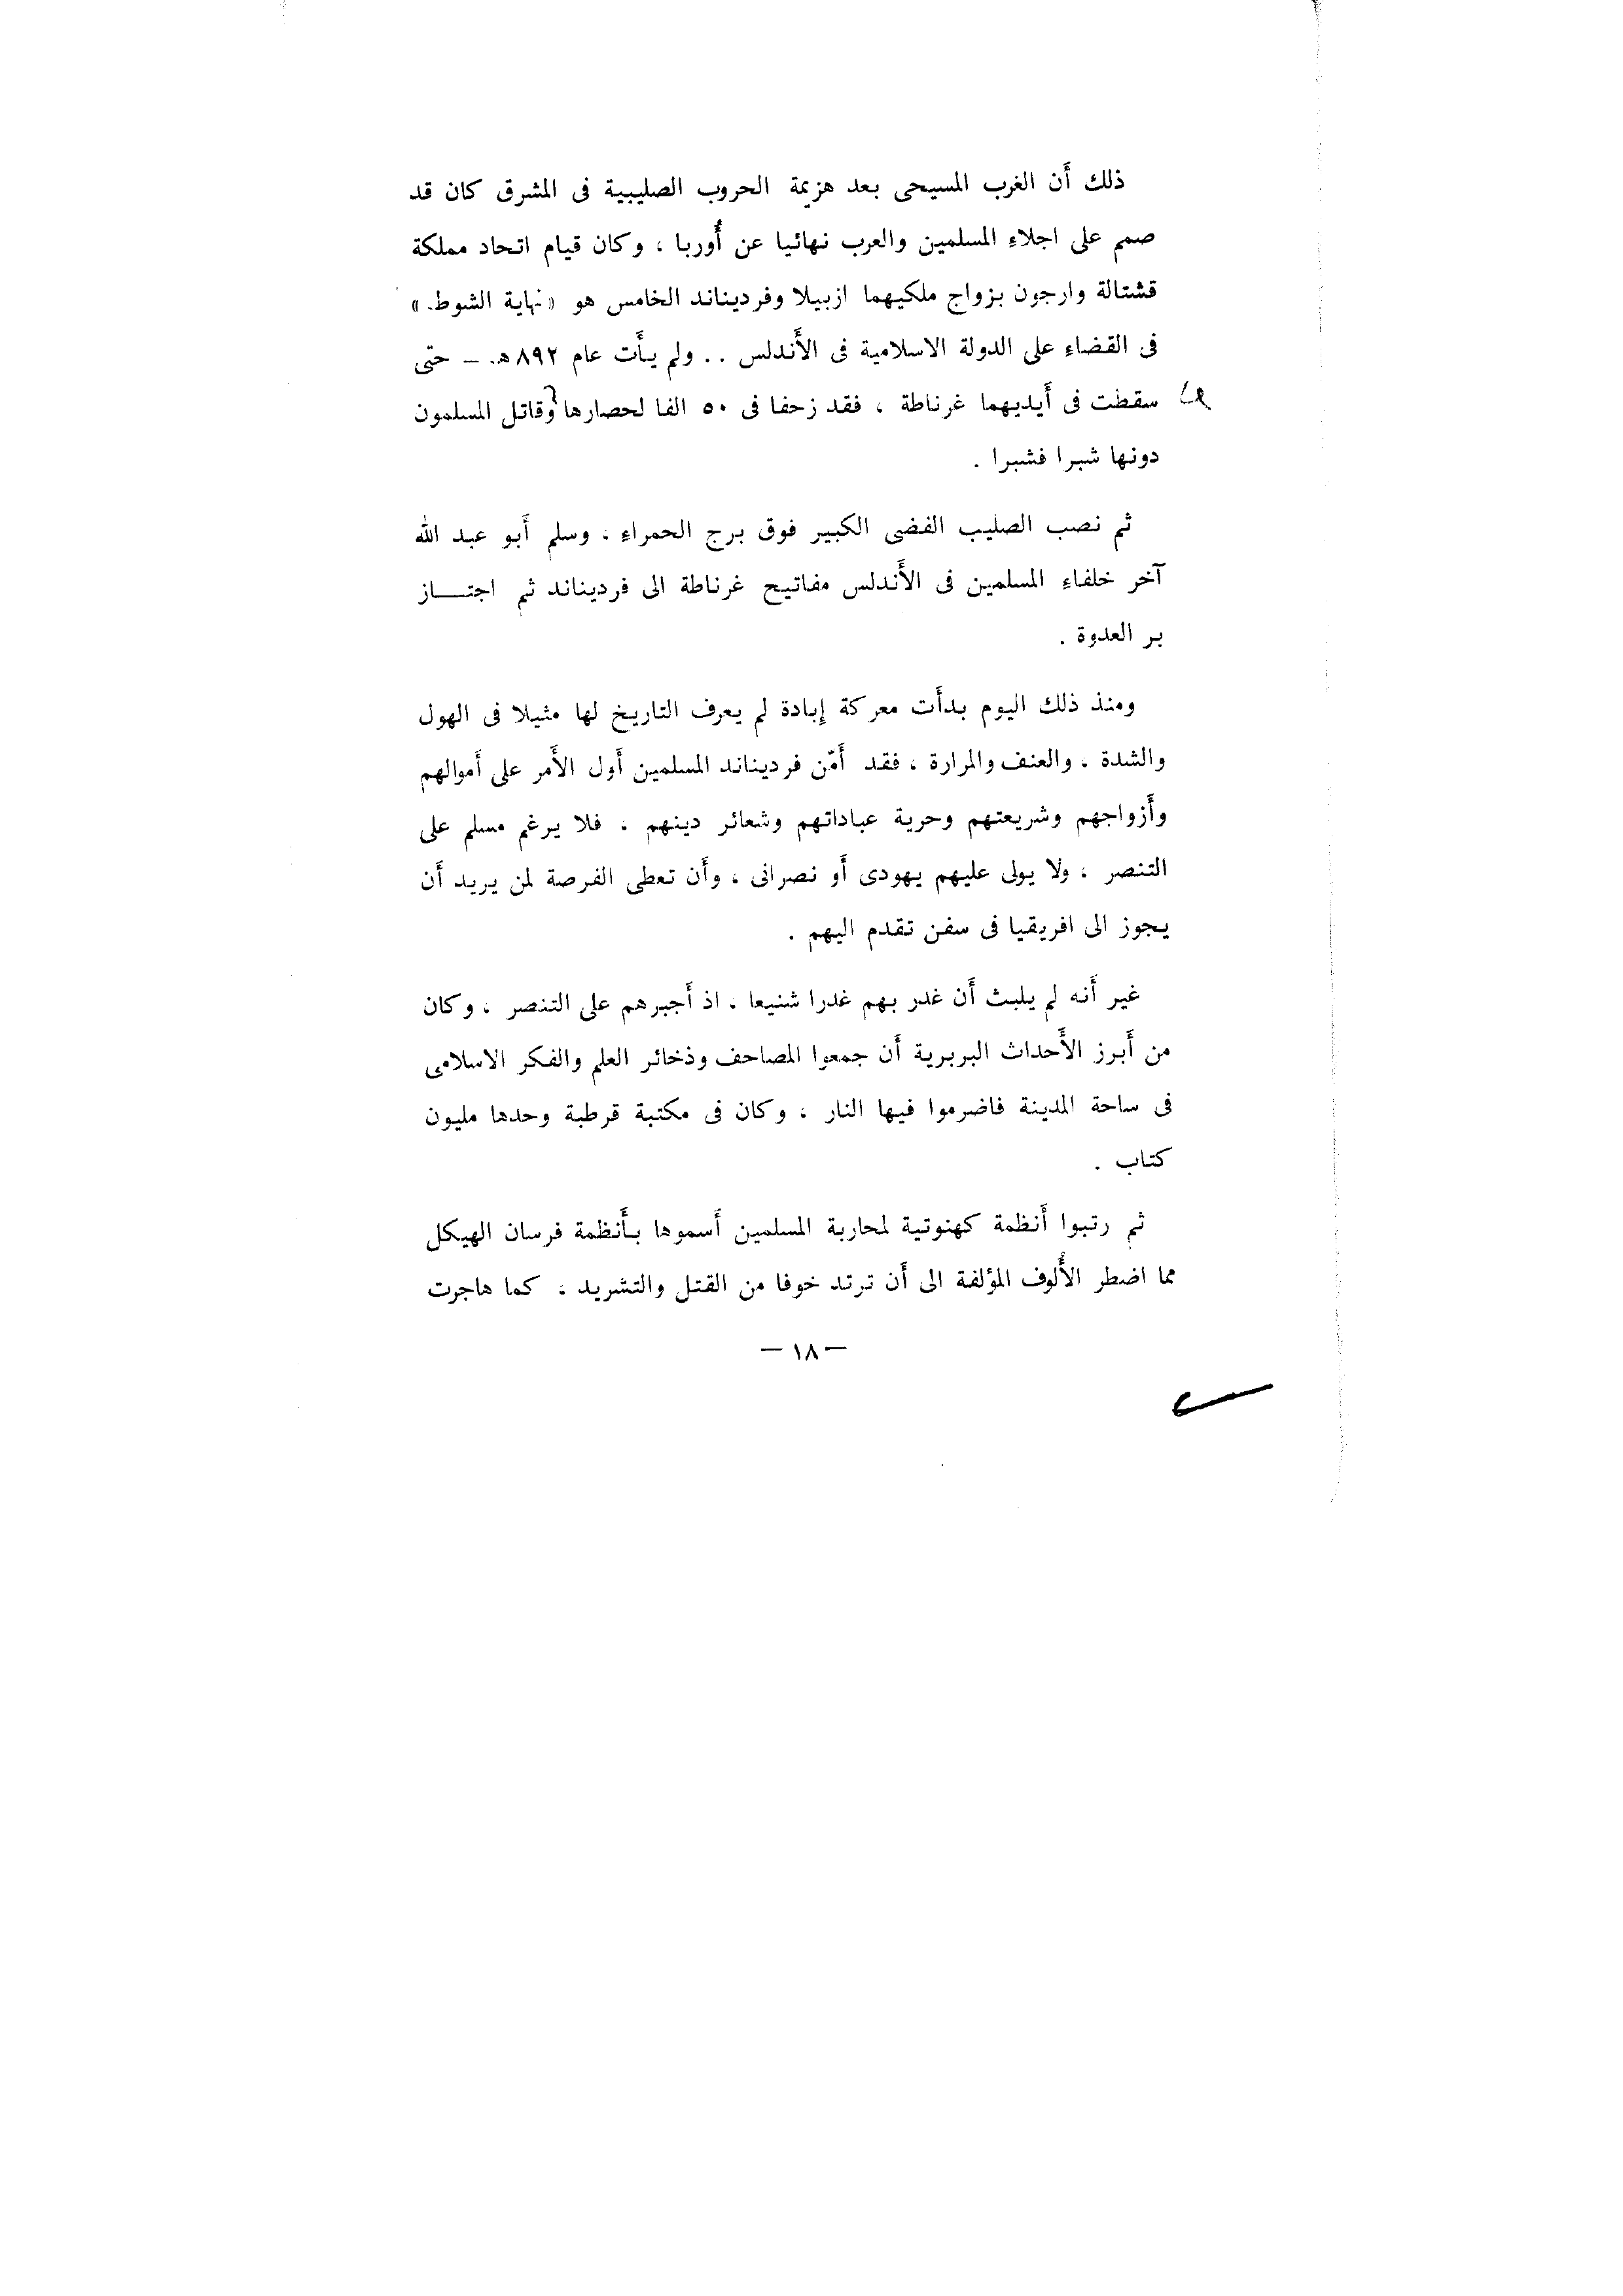 ذلك أن الغرب المسيحى بعد هزيمة الحروب الصليبية فى المشرق كان قد
صمم على اجلاء المسلمين والعرب نهائيا عن أوربا ، وكان قيام اتحاد مملكة
قشتالة وارجون بزواج ملكيهما ازبيلا وفرديناند الخامس هو «نهاية الشوط»
فى القضاء على الدولة الاسلامية فى الأندلس .. ولم يأت عام ٨٩٢ه‍ – حتى
سقطت فى أيديهما غرناطة ، فقد زحفا فى ٥٠ الفا لحصارها وقاتل المسلمون
دونها شبرا فشبرا .
ثم نصب الصليب الفضى الكبير فوق برج الحمراء ، وسلم أبو عبد الله
آخر خلفاء المسلمين فى الأندلس مفاتيح غرناطة الى فرديناند ثم اجتـــاز
بر العدوة .
ومنذ ذلك اليوم بدأت معركة إبادة لم يعرف التاريخ لها مثيلا فى الهول
والشدة ، والعنف والمرارة ، فقد أمّن فرديناند المسلمين أول الأمر على أموالهم
وأزواجهم وشريعتهم وحرية عباداتهم وشعائر دينهم . فلا يرغم مسلم على
التنصر ، ولا يولى عليهم يهودى أو نصرانى ، وأن تعطى الفرصة لمن يريد أن
يجوز الى افريقيا فى سفن تقدم اليهم .
غير أنه لم يلبث أن غدر بهم غدرا شنيعا . اذ أجبرهم على التنصر ، وكان
من أبرز الأحداث البربرية أن جمعوا المصاحف وذخائر العلم والفكر الاسلامى
فى ساحة المدينة فاضرموا فيها النار ، وكان فى مكتبة قرطبة وحدها مليون
كتاب .
ثم رتبوا أنظمة كهنوتية لمحاربة المسلمين أسموها بأنظمة فرسان الهيكل
مما اضطر الألوف المؤلفة الى أن ترتد خوفا من القتل والتشريد ، كما هاجرت
– ١٨ –